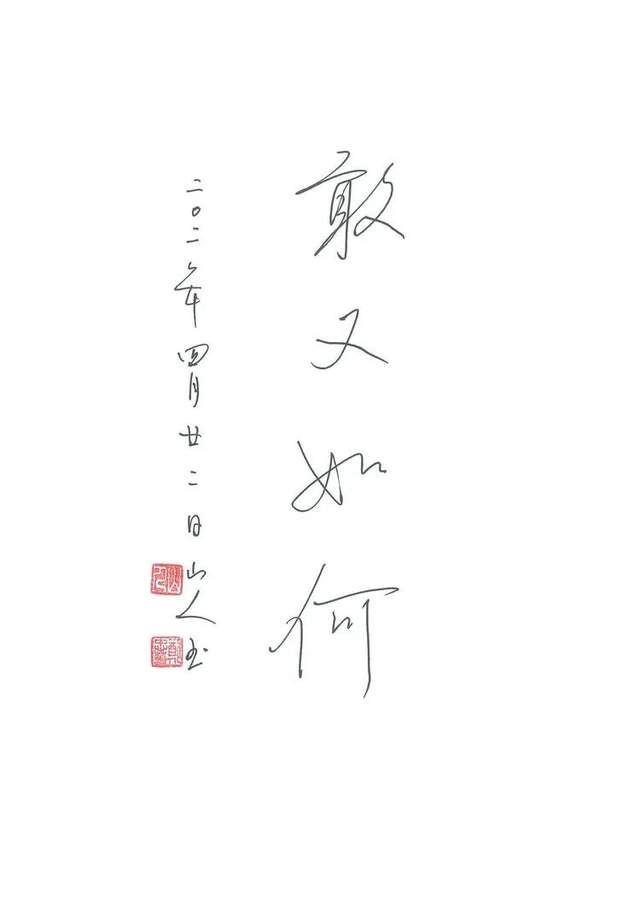 敢又如何
二〇二年四月廿二日山人书